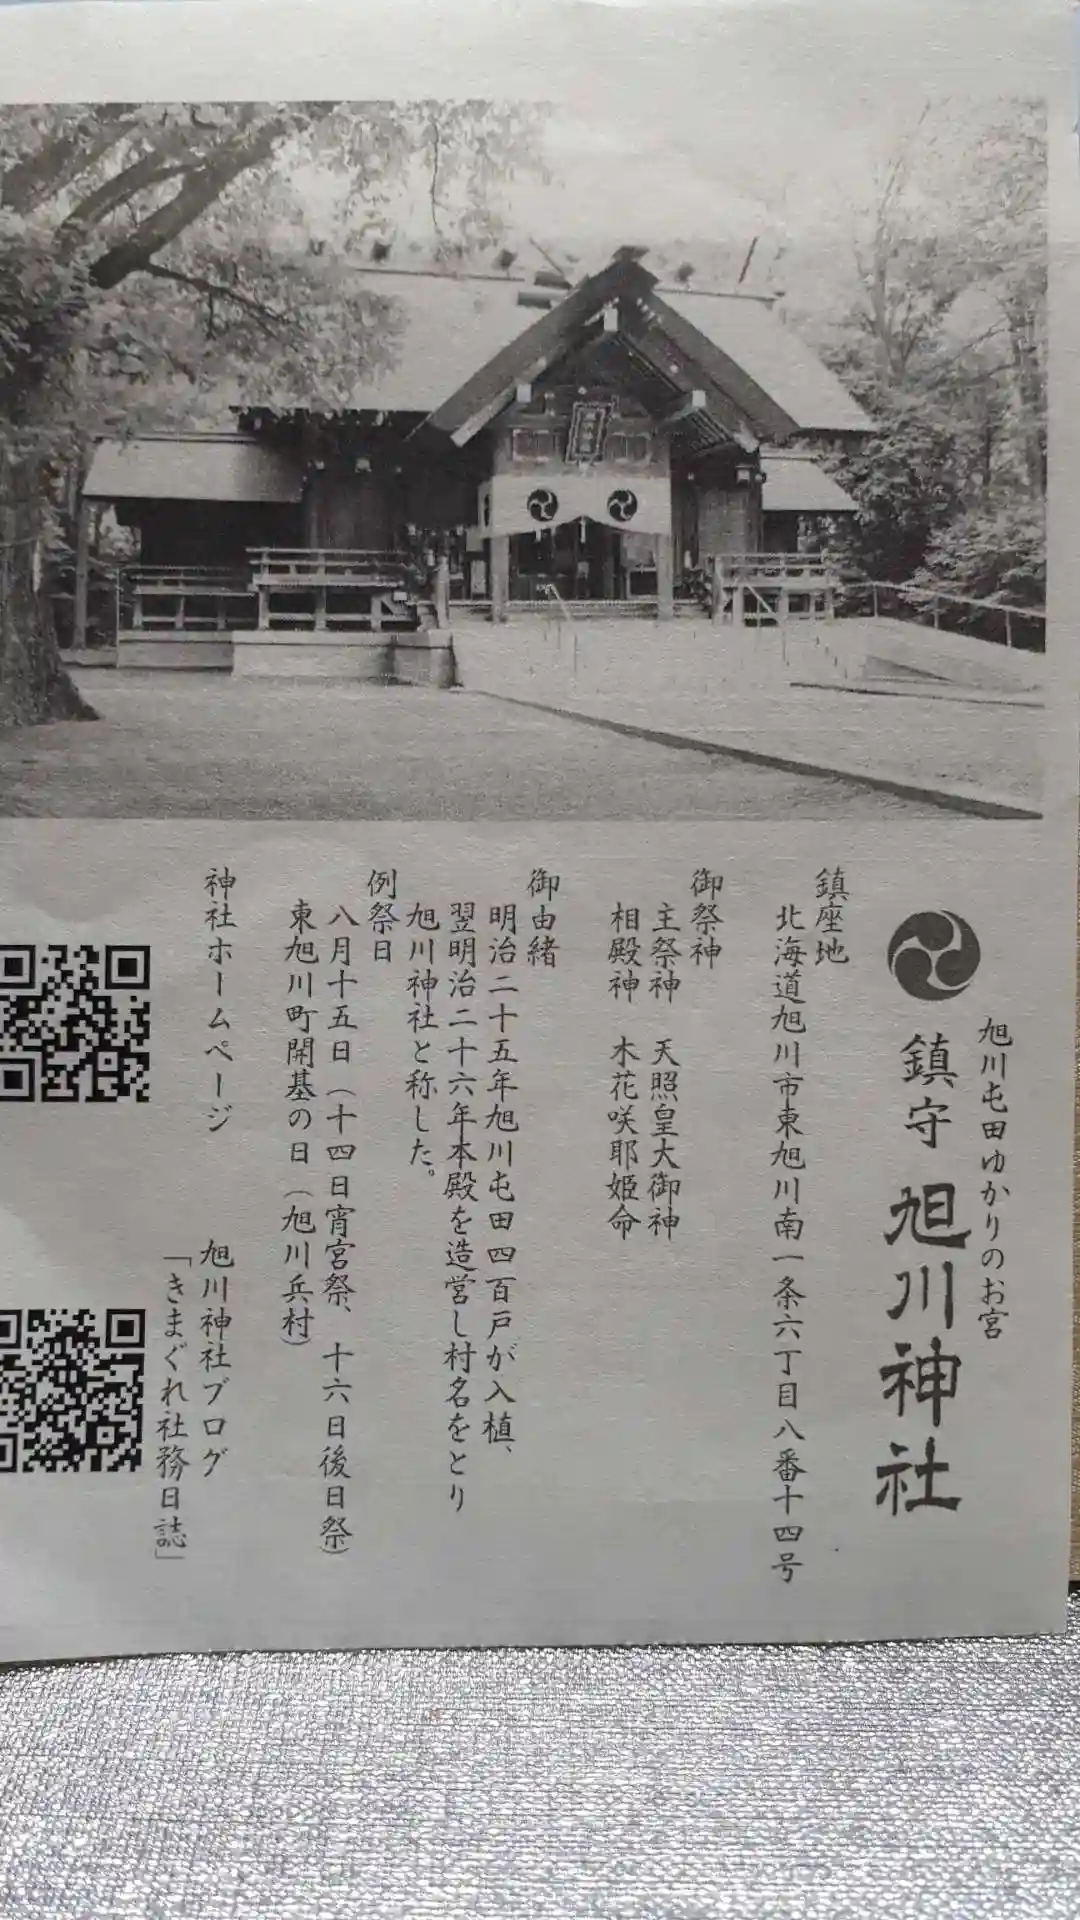 旭川屯田ゆかりのお宮
鎮守 旭川神社
鎮座地
北海道旭川市東旭川南一条六丁目八番十四号
御祭神
主祭神 天照皇大御神
相殿神 木花咲耶姫命
御由緒
明治二十五年旭川屯田四百戸が入植、
翌明治二十六年本殿を造営し村名をとり
旭川神社と称した。
例祭日
八月十五日（十四日宵宮祭、十六日後日祭）
東旭川町開基の日（旭川兵村）
神社ホームページ
旭川神社ブログ
「きまぐれ社務日誌」